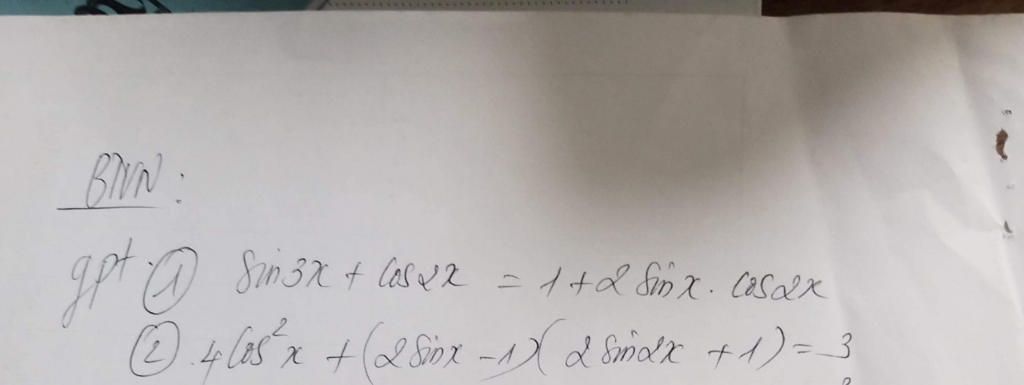 BNN:
gpt. ① sin3x + cos2x = 1+2 sinx. cos2x
② .4cos²x + (2sinx -1)(2sin2x +1)= 3